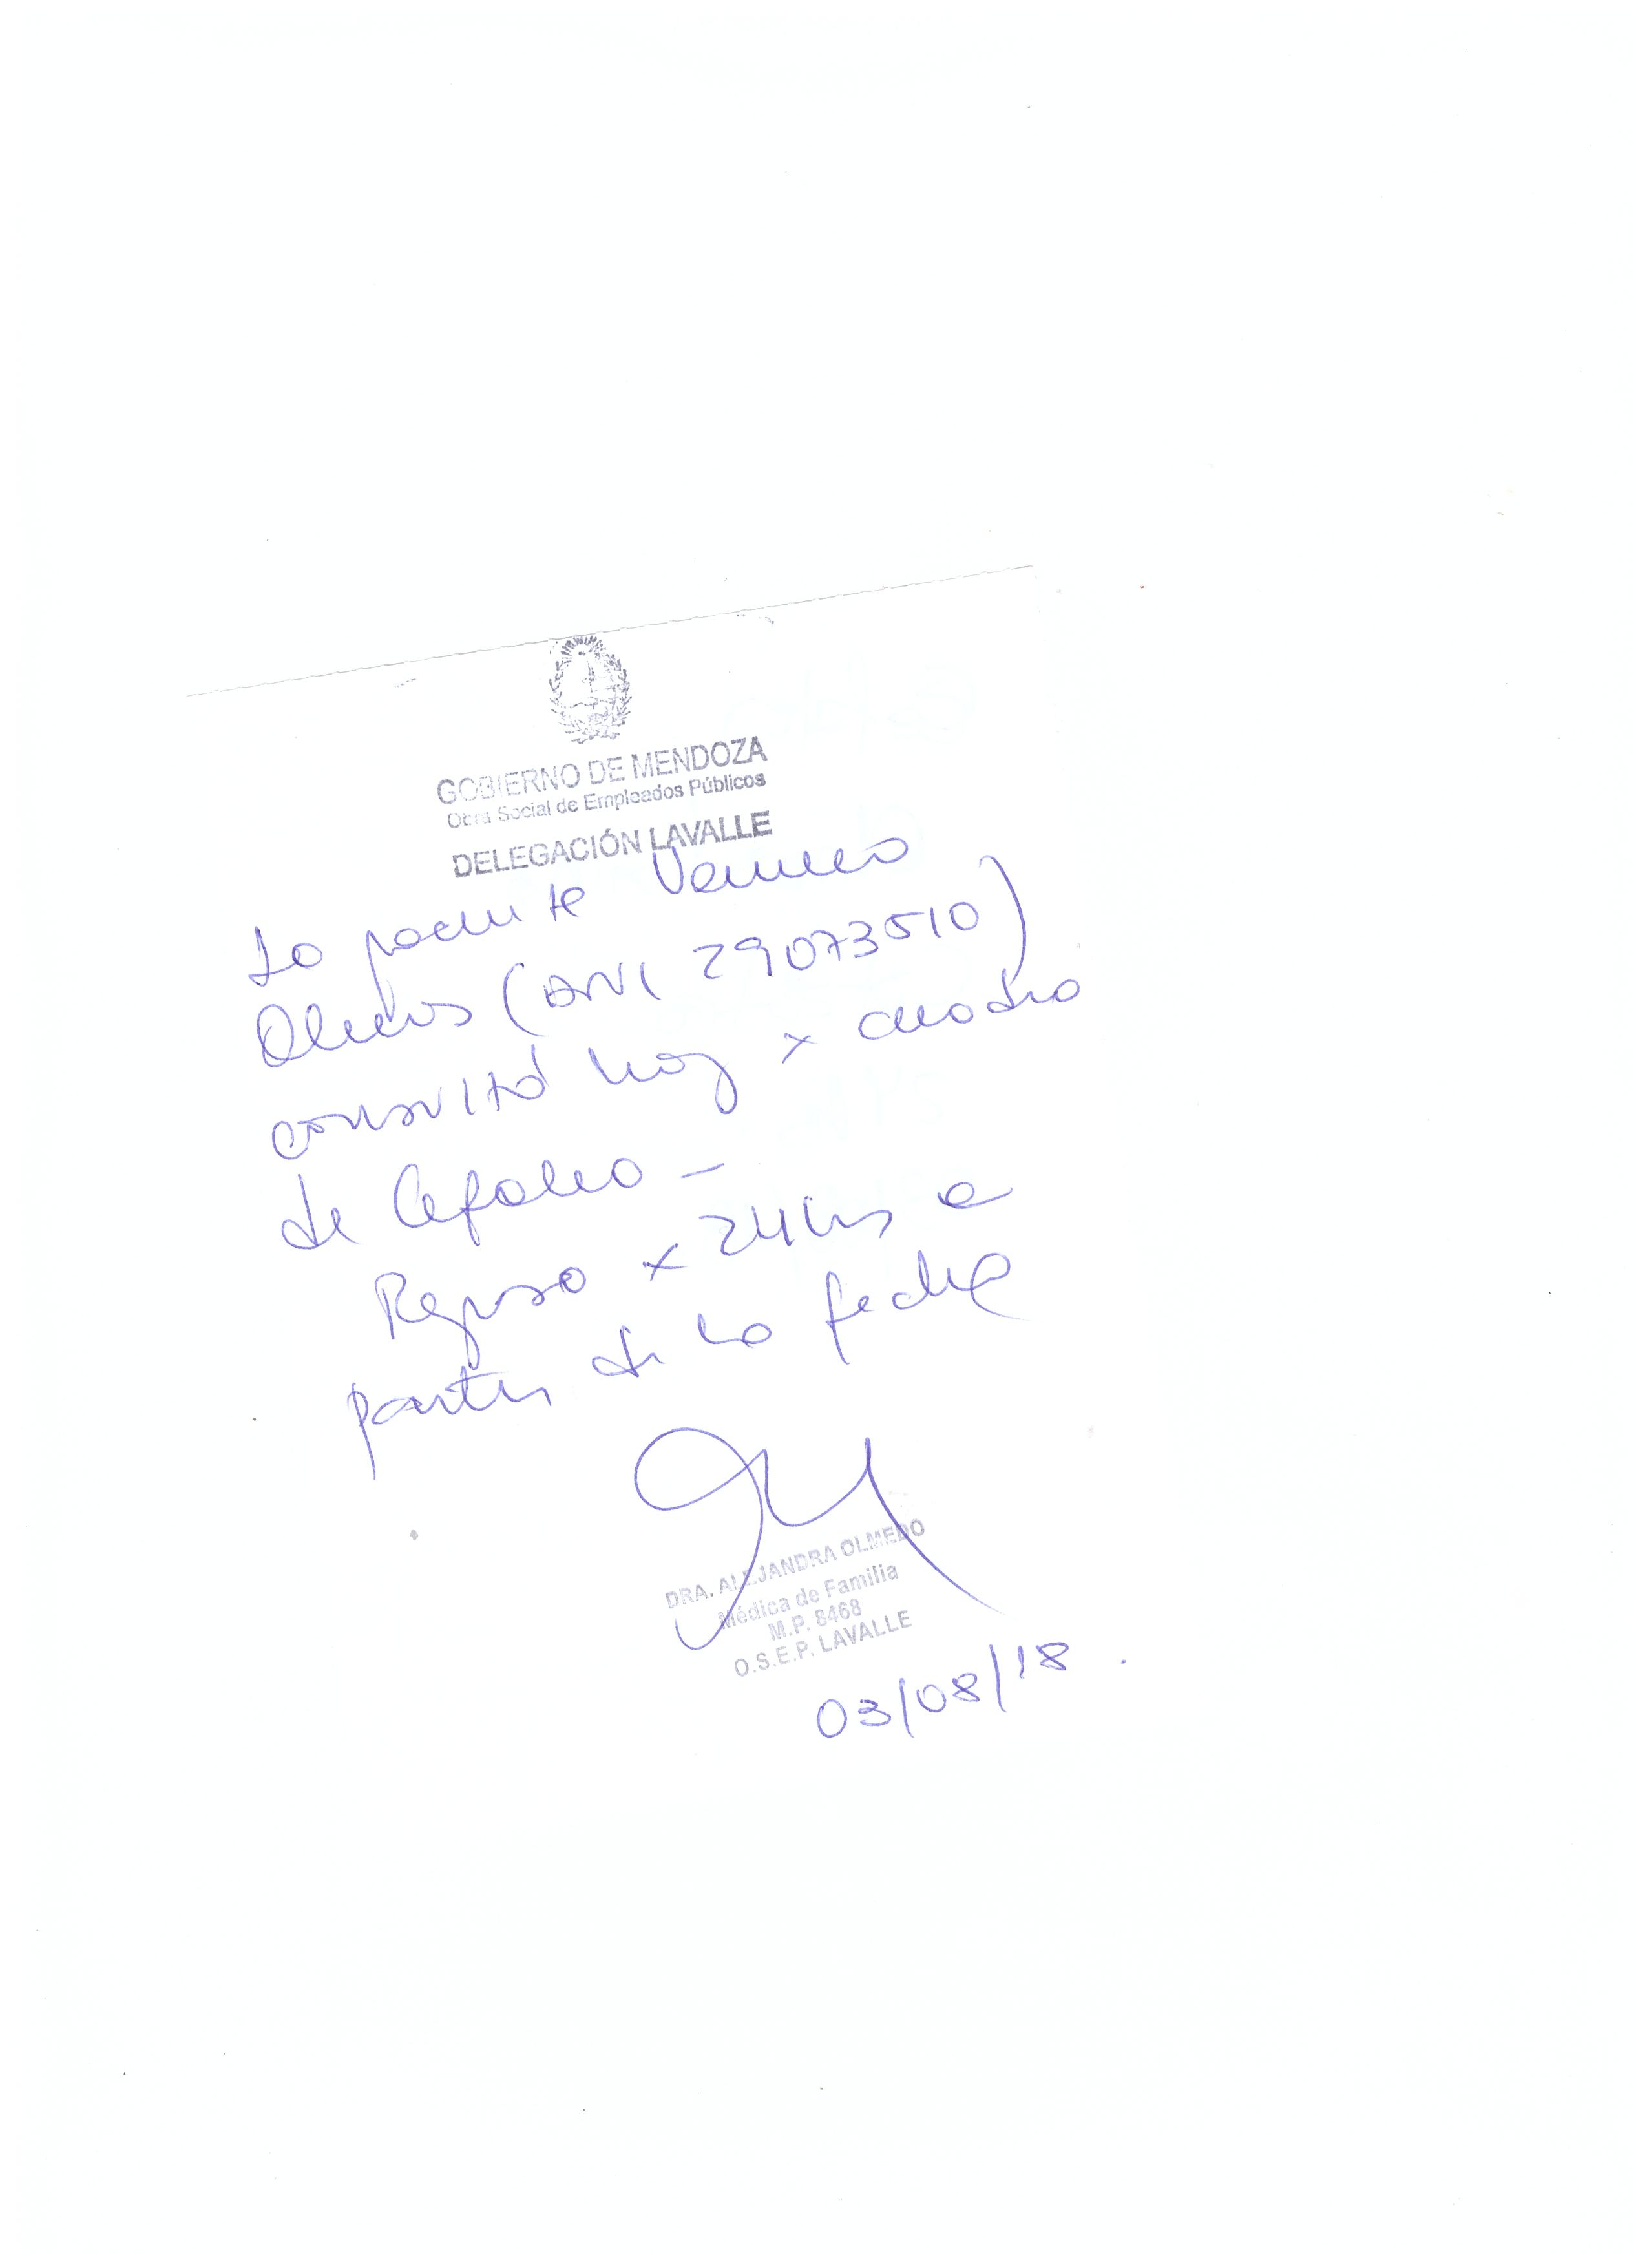 GOBIERNO DE MENDOZA
Obra Social de Empleados Públicos
DELEGACIÓN LAVALLE
La paciente
(DNI 29073510)
consultó hoy x cuadro
de Cefalea -
Reposo x 24hs a
partir de la fecha
DRA. ALEJANDRA OLMEDO
Médica de Familia
M.P. 8468
O.S.E.P. LAVALLE
03/08/18.